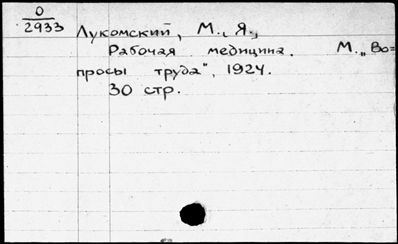 О
2933
Лукомский, М., Я.,
Рабочая медицина. М. „Во=
просы труда", 1924.
30 стр.